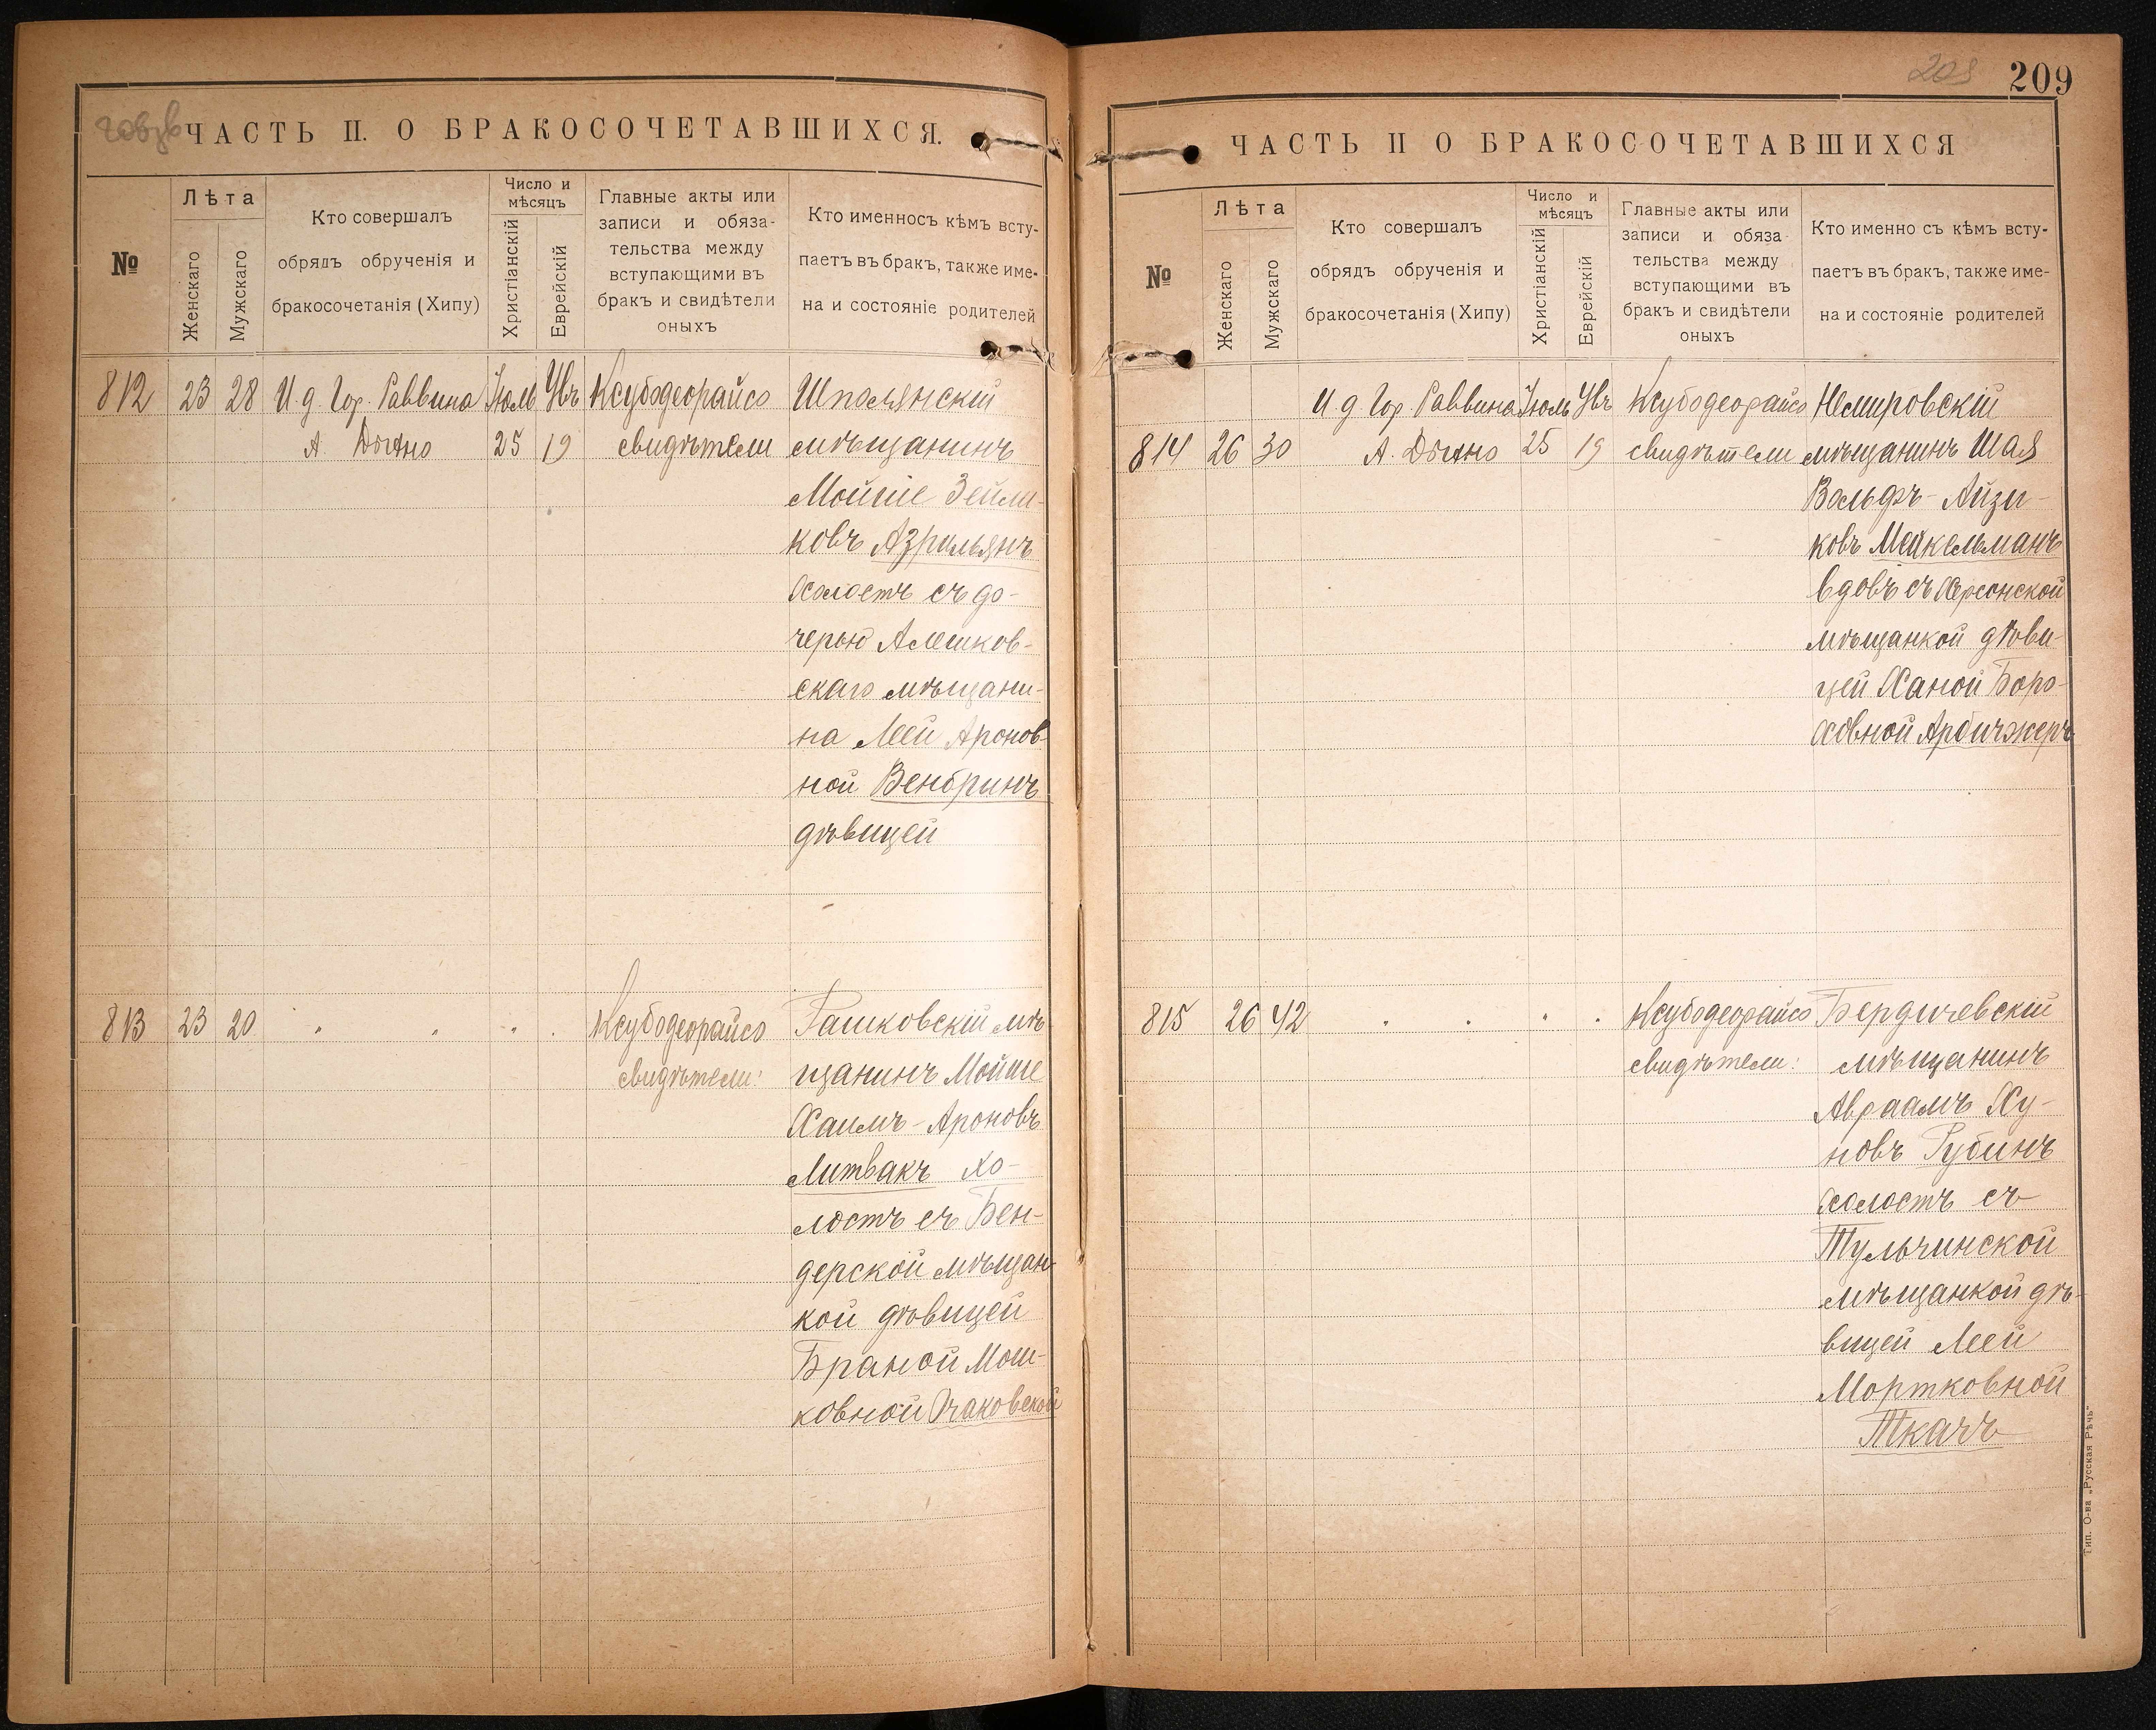 ЧАСТЬ II. О БРАКОСОЧЕТАВШИХСЯ.
№
Лѣта
Женскаго
Мужскаго
Кто совершалъ
обрядъ обрученія и
бракосочетанія (Хипу)
Число и
мѣсяцъ
Христіанскій
Еврейскій
Главные акты или
записи и обяза-
тельства между
вступающими въ
бракъ и свидѣтели
оныхъ
Кто именносъ кѣмъ всту-
паетъ въ бракъ, также име-
на и состояніе родителей
812 23 28 И. д. Гор. Раввина Іюль Увъ Ксубодеорайсо Шполянскій
А. 25 19 свидѣтели мѣщанинъ
Мойше Зейли-
ковъ Азрильянъ
Холостъ съ до-
черью Алешков-
скаго мѣщани-
на Леей Аронов-
ной Венбринъ
дѣвицей
813 23 20 " " " . Ксубодеорайсо Рашковскій мѣ-
свидѣтели: щанинъ Мойше
Хаимъ-Ароновъ
Литвакъ хо-
лостъ съ Бен-
дерской мѣщан-
кой дѣвицей
Браной Мош-
ковной Очаковской
209
209
ЧАСТЬ II О БРАКОСОЧЕТАВШИХСЯ
№
Лѣта
Женскаго
Мужскаго
Кто совершалъ
обрядъ обрученія и
бракосочетанія (Хипу)
Число и
мѣсяцъ
Христіанскій
Еврейскій
Главные акты или
записи и обяза-
тельства между
вступающими въ
бракъ и свидѣтели
оныхъ
Кто именно съ кѣмъ всту-
паетъ въ бракъ, также име-
на и состояніе родителей
И. д. Гор. Раввина Іюль Увъ Ксубодеорайсо Немировскій
814 26 30 А. 25 19 свидѣтели мѣщанинъ Шая
Вольфъ-Айзи-
ковъ Мейкельманъ
вдовъ съ Херсонской
мѣщанкой дѣви-
цей Ханой Боро-
ховной
815 26 42 " " " . Ксубодеорайсо Бердичевскій
свидѣтели: мѣщанинъ
Авраамъ Ху-
новъ Рубинъ
холостъ съ
Тульчинской
мѣщанкой дѣ-
вицей Леей
Мортковной
Ткачъ
Тип. О-ва „Русская Рѣчь"